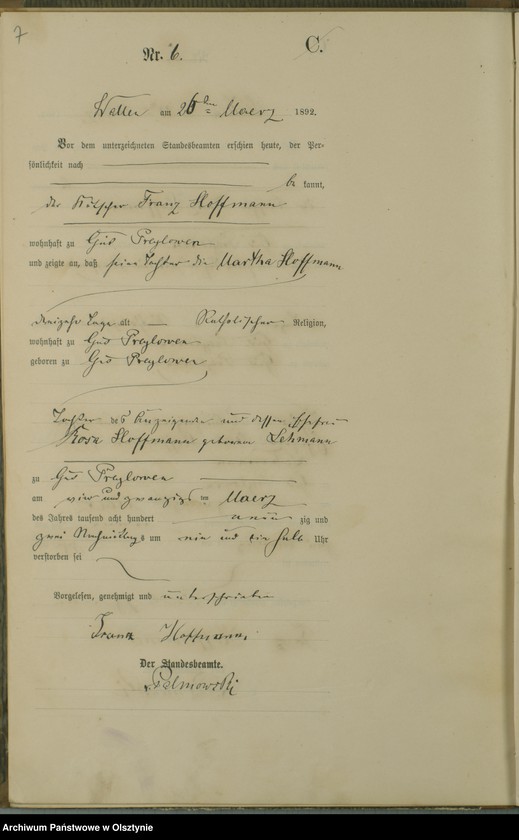 7
Nr. 6.
C.
am 26ten Maerz 1892.
Vor dem unterzeichneten Standesbeamten erschien heute, der Per-
sönlichkeit nach
be kannt,
der Franz Hoffmann
wohnhaft zu Gut Preylowen
und zeigte an, daß seine Tochter die Martha Hoffmann
dreizehn Tage alt — Katholischer Religion,
wohnhaft zu Gut Preylowen
geboren zu Gut Preylowen
Tochter des Anzeigenden und dessen Ehefrau
Rosa Hoffmann geborene Lehmann
zu Gut Preylowen
am vier und zwanzigsten Maerz
des Jahres tausend acht hundert neun zig und
zwei Nachmittags um ein halb Uhr
verstorben sei
Vorgelesen, genehmigt und unterschrieben
Franz Hoffmann
Der Standesbeamte.
Palmowski
Archiwum Państwowe w Olsztynie